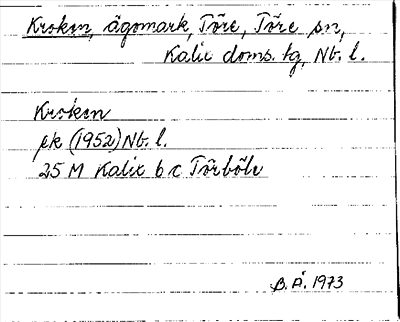 Kroken, ägomark, Töre, Töre sn,
Kalix doms. tg, Nb. l.
Kroken
ek (1952) Nb. l.
25 M Kalix 6 c Törböle
B. Å. 1973